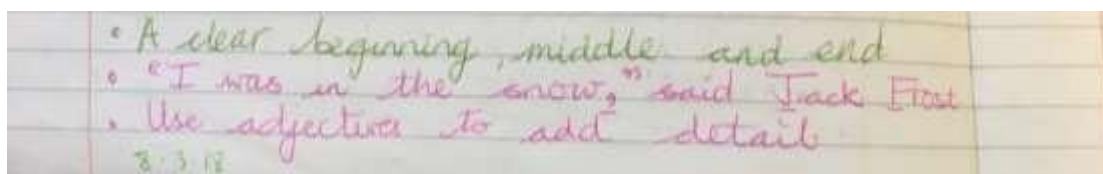 • A clear beginning, middle and end
• "I was in the snow," said Jack Frost
• Use adjectives to add detail
8.3.18